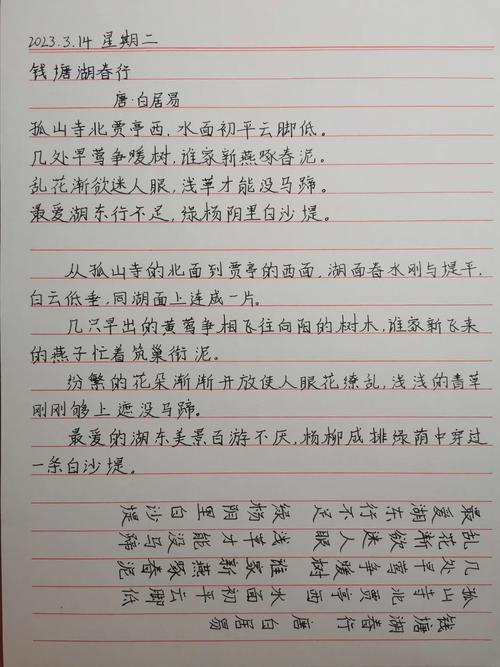 2023.3.14 星期二
钱塘湖春行
唐·白居易
孤山寺北贾亭西,水面初平云脚低。
几处早莺争暖树,谁家新燕啄春泥。
乱花渐欲迷人眼,浅草才能没马蹄。
最爱湖东行不足,绿杨阴里白沙堤。
从孤山寺的北面到贾亭的西面,湖面春水刚与堤平,
白云低垂,同湖面上连成一片。
几只早出的黄莺争相飞往向阳的树木,谁家新飞来
的燕子忙着筑巢衔泥。
纷繁的花朵渐渐开放使人眼花缭乱,浅浅的青草
刚刚够上遮没马蹄。
最爱的湖东美景百游不厌,杨柳成排绿荫中穿过
一条白沙堤。
钱塘湖春行 唐 白居易
孤山寺北贾亭西 水面初平云脚低
几处早莺争暖树 谁家新燕啄春泥
乱花渐欲迷人眼 浅草才能没马蹄
最爱湖东行不足 绿杨阴里白沙堤